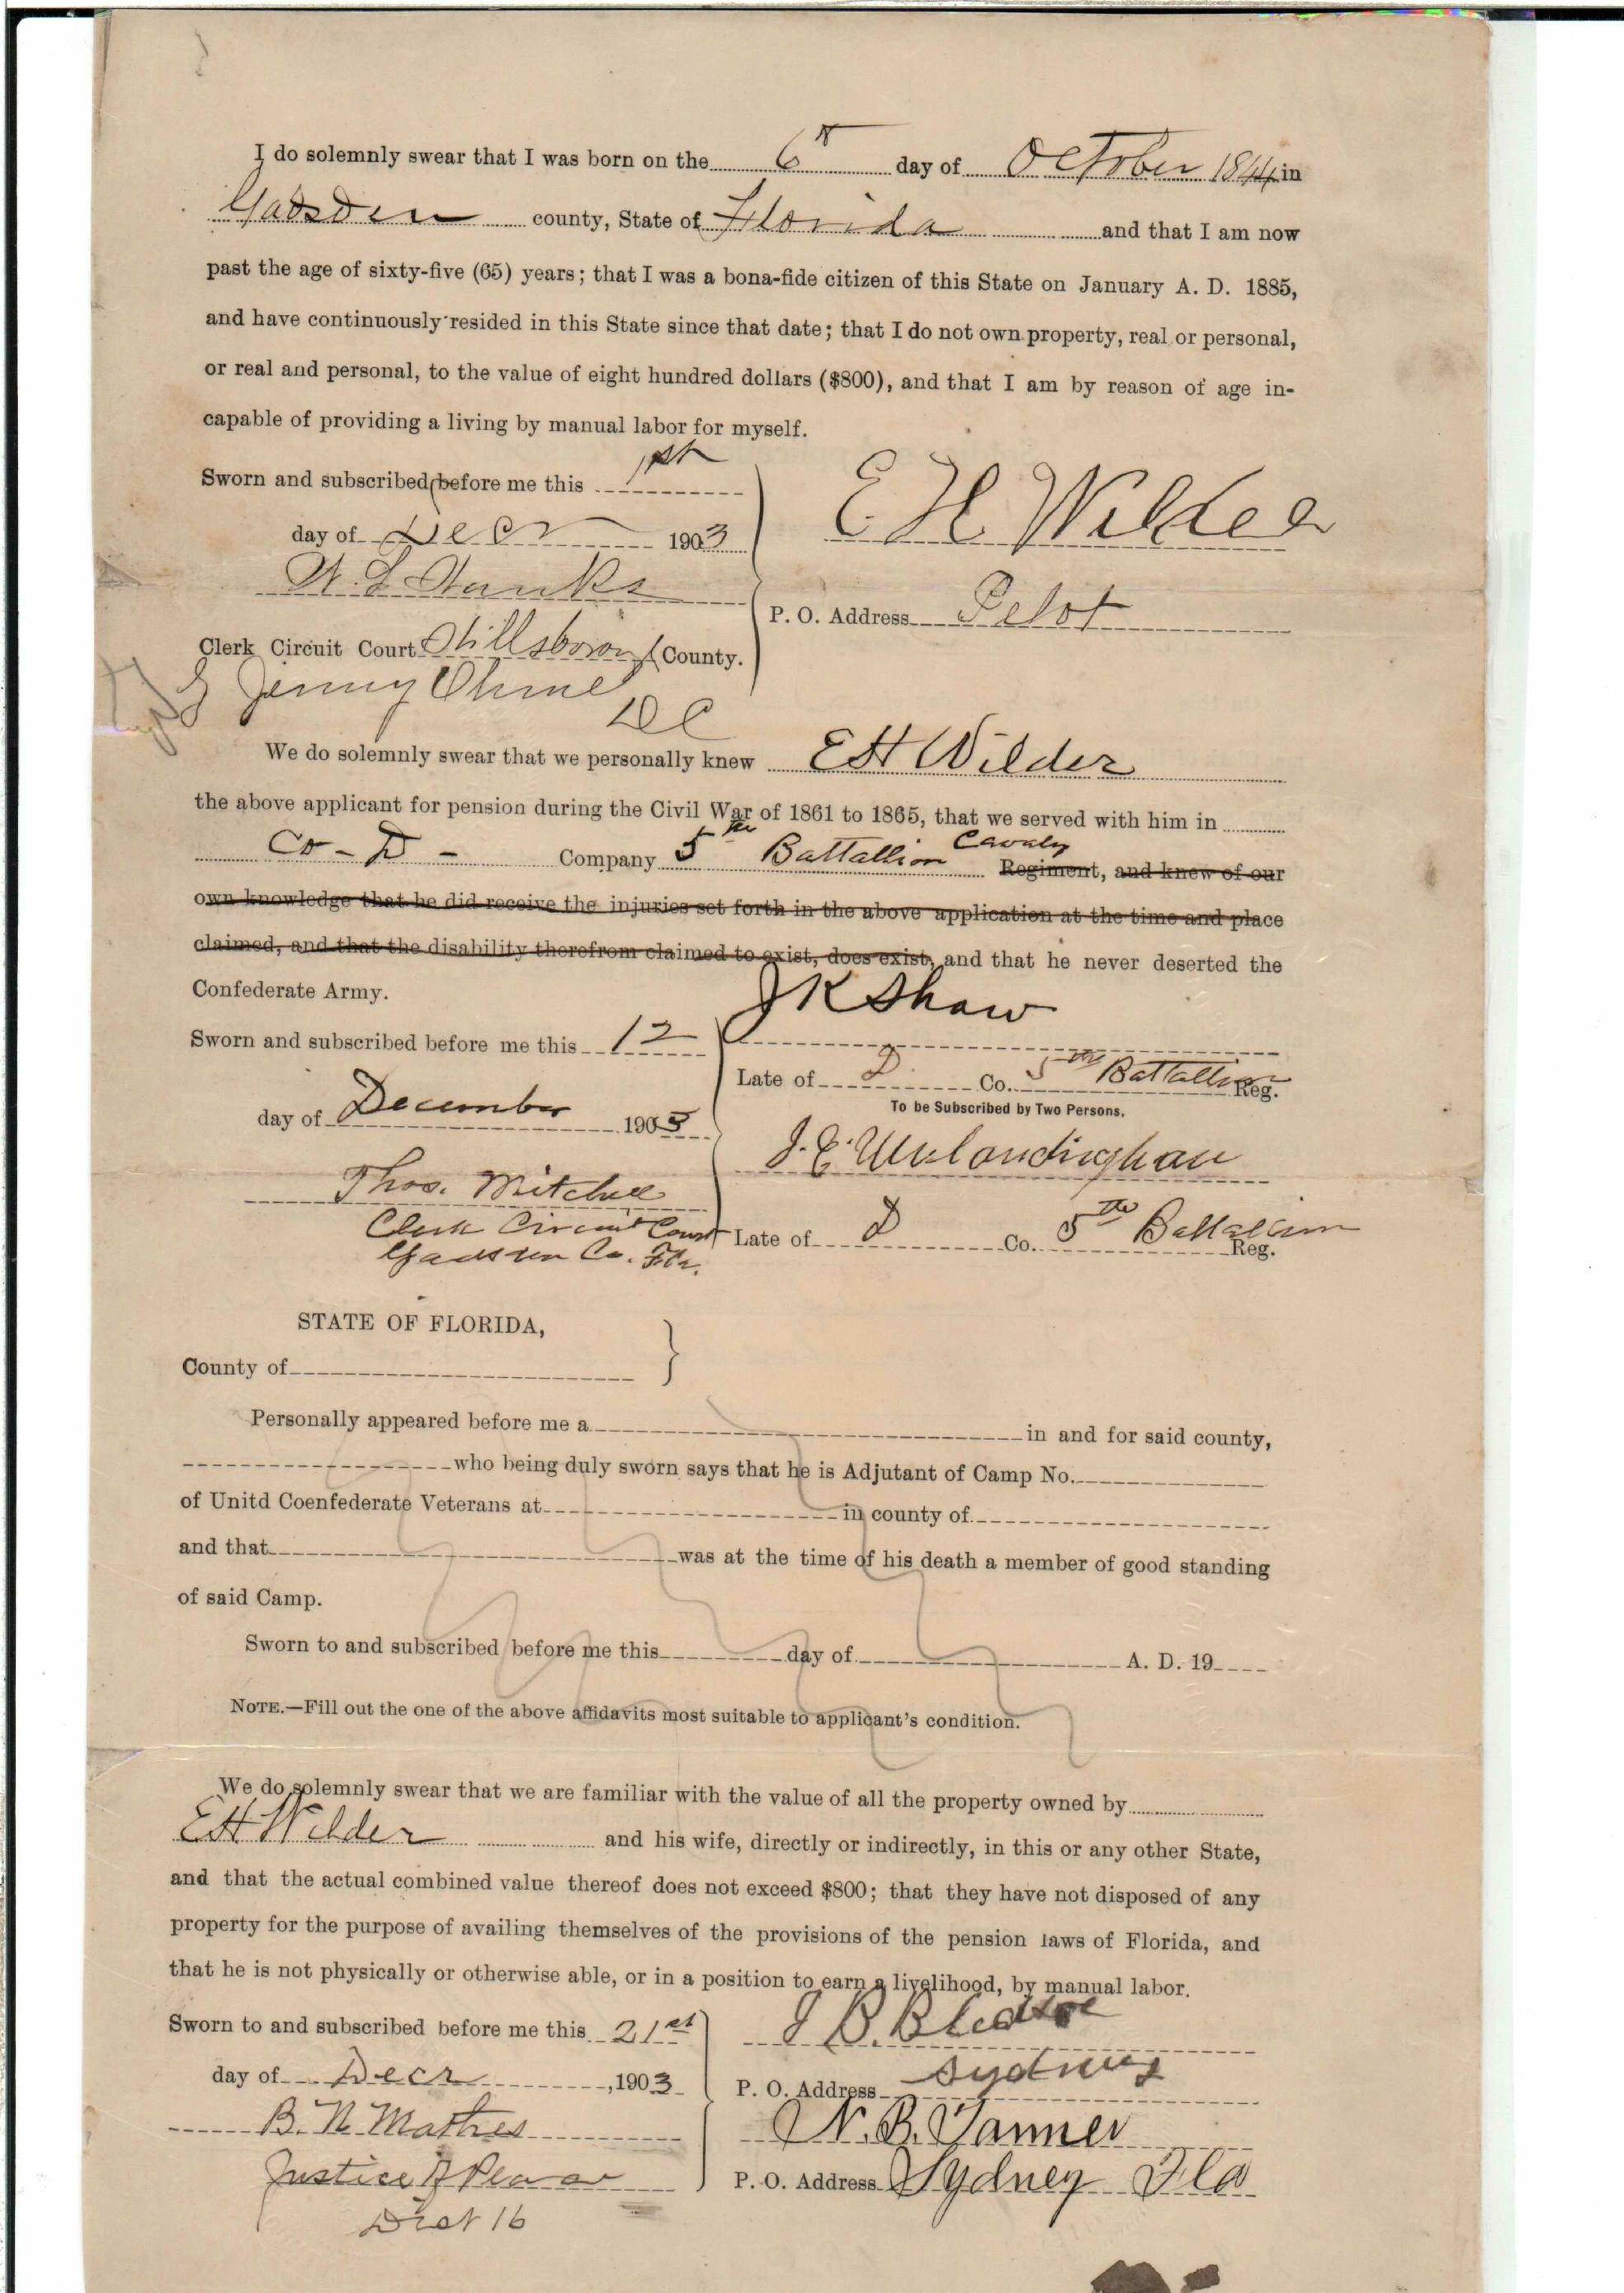 I do solemnly swear that I was born on the 6th day of October 1844 in
Gadsden county, State of Florida and that I am now
past the age of sixty-five (65) years; that I was a bona-fide citizen of this State on January A. D. 1885,
and have continuously resided in this State since that date; that I do not own property, real or personal,
or real and personal, to the value of eight hundred dollars ($800), and that I am by reason of age in-
capable of providing a living by manual labor for myself.
Sworn and subscribed before me this 1st
day of Decr 1903
E H Wilder
P. O. Address Pelot
Clerk Circuit Court Hillsboro County.
D C
We do solemnly swear that we personally knew E H Wilder
the above applicant for pension during the Civil War of 1861 to 1865, that we served with him in
Co - D - Company 5th Battallion Cavalry Regiment, and knew of our
own knowledge that he did receive the injuries set forth in the above application at the time and place
claimed, and that the disability therefrom claimed to exist, does exist, and that he never deserted the
Confederate Army.
J K Shaw
Sworn and subscribed before me this 12
Late of D Co. 5th Battallion Reg.
To be Subscribed by Two Persons.
day of December 1903
Thos. Mitchell
Clerk Circuit Court
Gadsden Co. Fla.
Late of D Co. 5th Battalion Reg.
STATE OF FLORIDA,
County of
Personally appeared before me a in and for said county,
who being duly sworn says that he is Adjutant of Camp No.
of Unitd Coenfederate Veterans at in county of
and that was at the time of his death a member of good standing
of said Camp.
Sworn to and subscribed before me this day of A. D. 19
NOTE.—Fill out the one of the above affidavits most suitable to applicant's condition.
We do solemnly swear that we are familiar with the value of all the property owned by
E H Wilder and his wife, directly or indirectly, in this or any other State,
and that the actual combined value thereof does not exceed $800; that they have not disposed of any
property for the purpose of availing themselves of the provisions of the pension laws of Florida, and
that he is not physically or otherwise able, or in a position to earn a livelihood, by manual labor.
Sworn to and subscribed before me this 21st
day of Decr, 1903
J B. Bledsoe
P. O. Address Sydney
B. N Mathes
N. B. Tanner
Justice of Peace
P. O. Address Sydney Fla
Dist 16